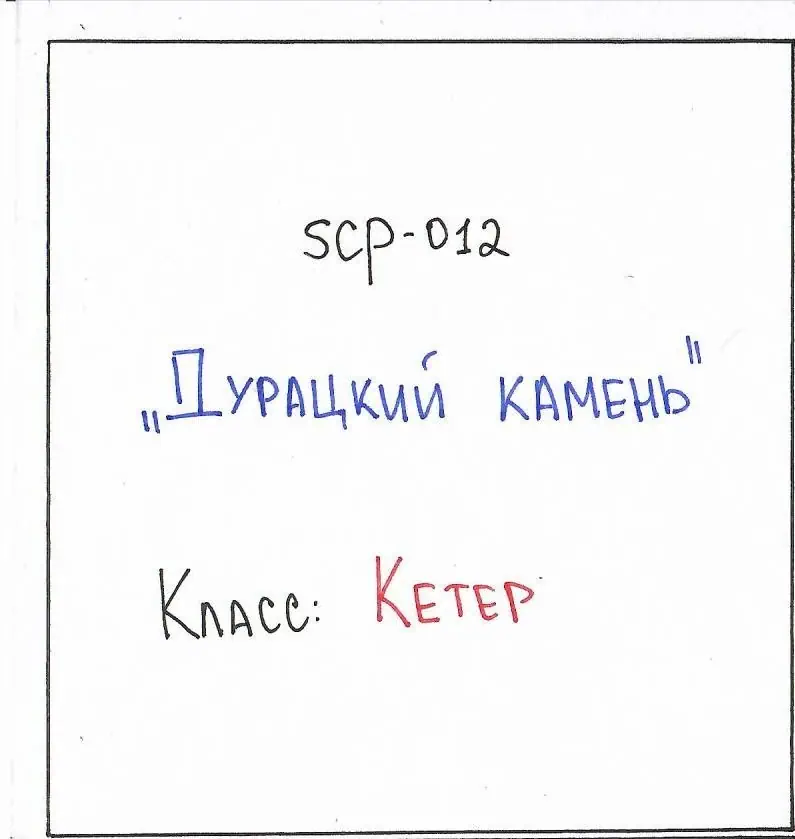 SCP-012
„Дурацкий камень"
Класс: Кетер